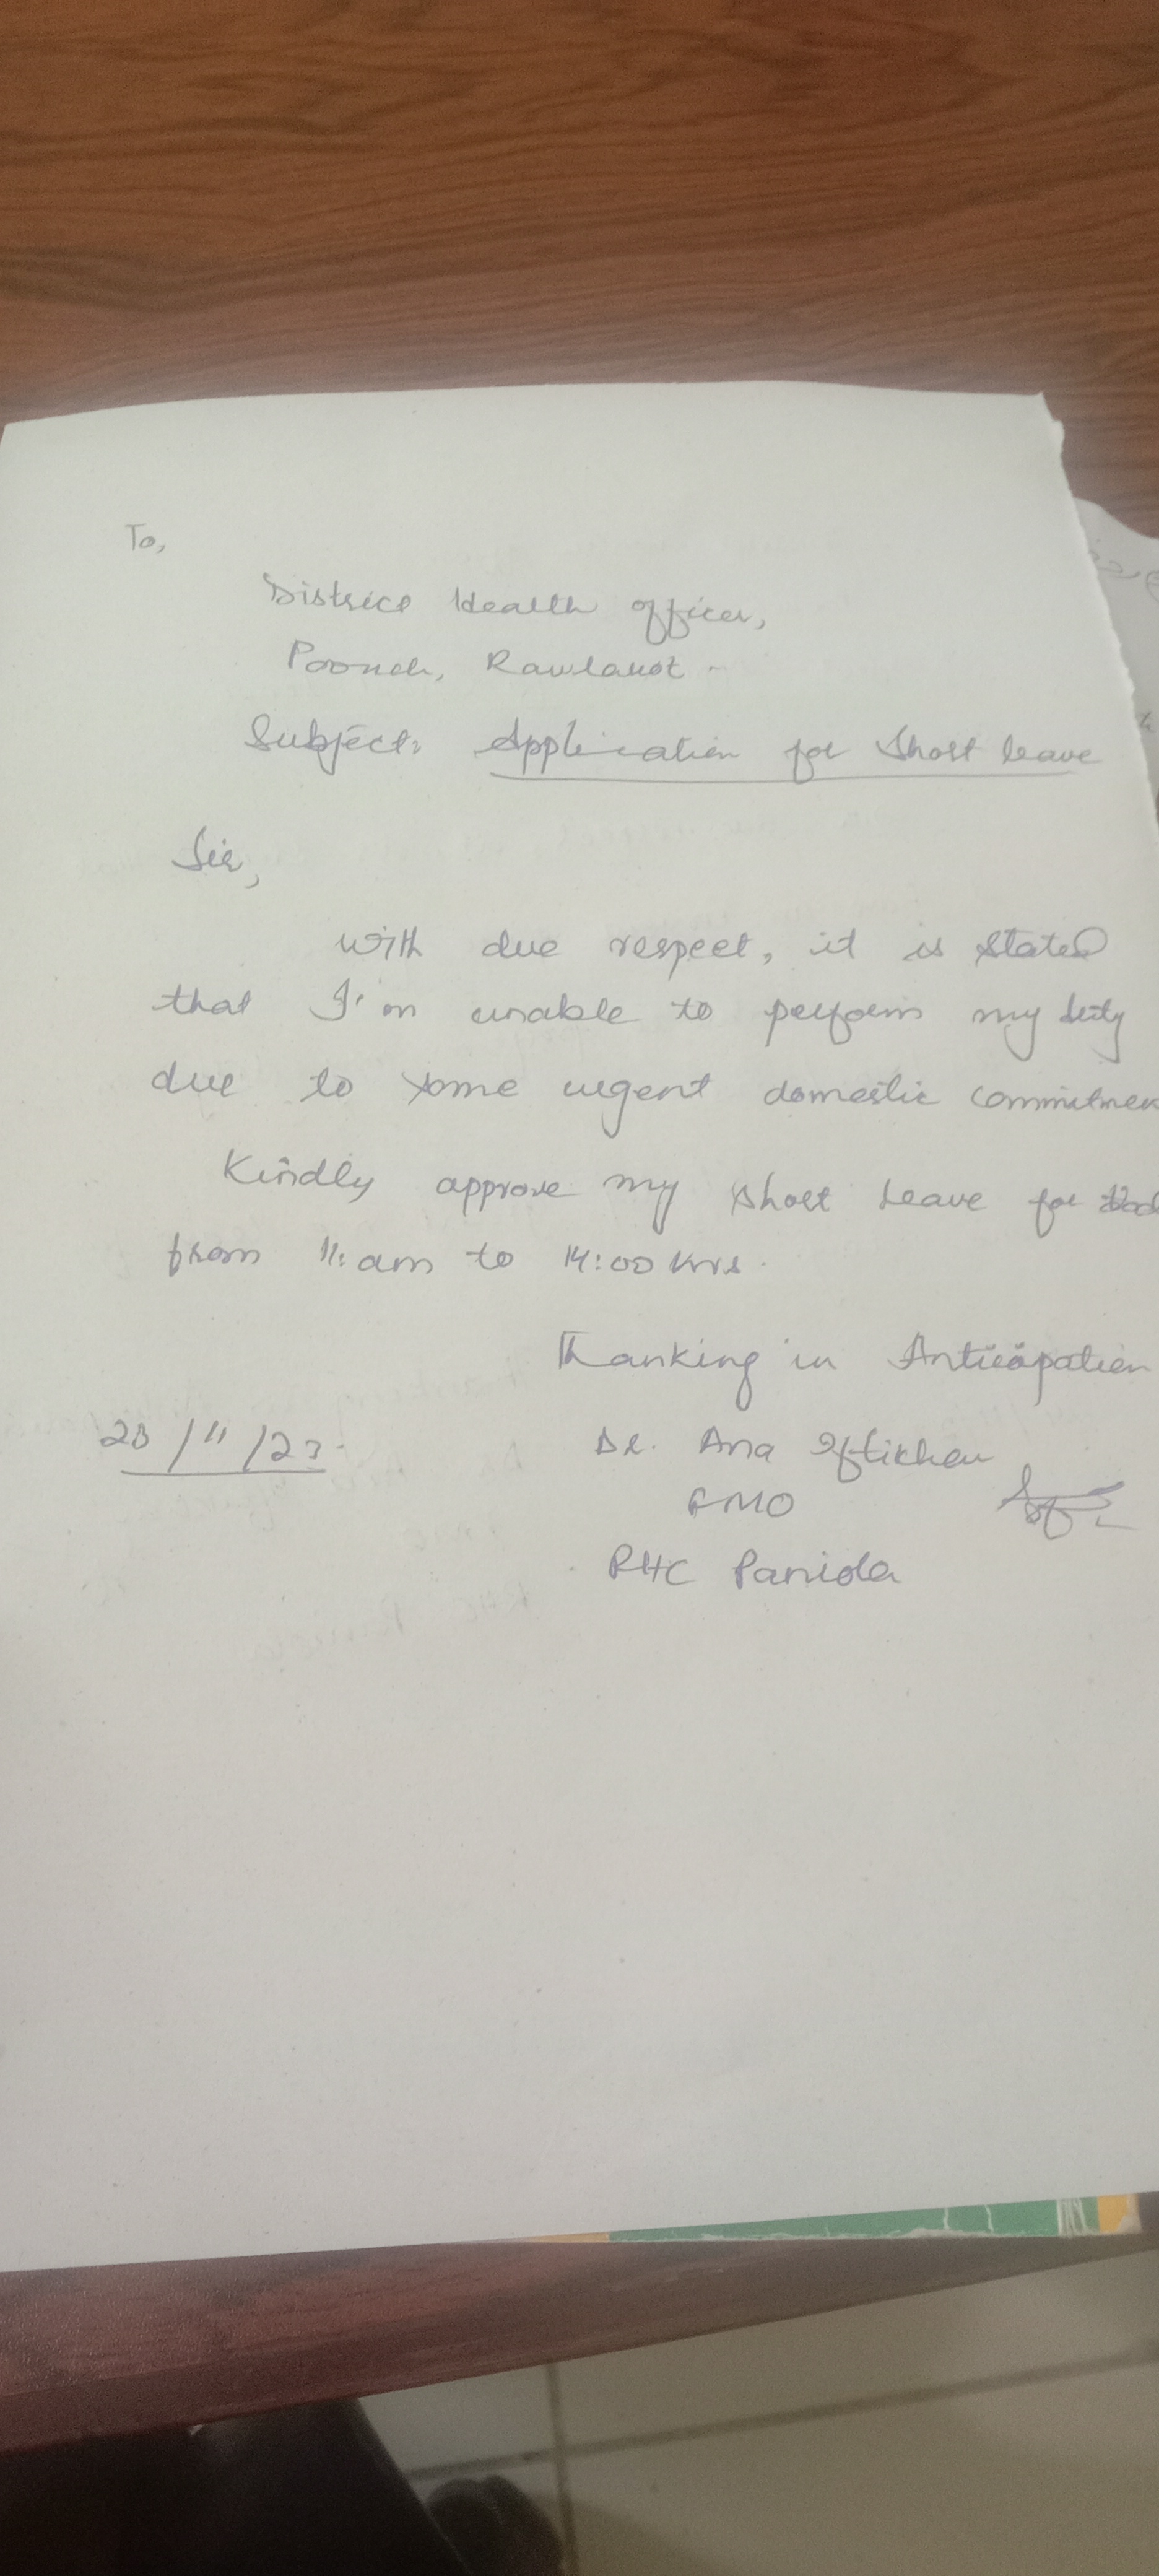 To,
District Health officer,
Poonch, Rawlakot
Subject: Application for Short leave
Sir,
with due respect, it is stated
that I'm unable to perform my duty
due to some urgent domestic commitmen
Kindly approve my short leave for
from 11:am to 14:00 hrs.
Thanking in Anticipation
/11/23. Dr. Ana Iftikhar
RHC Paniola